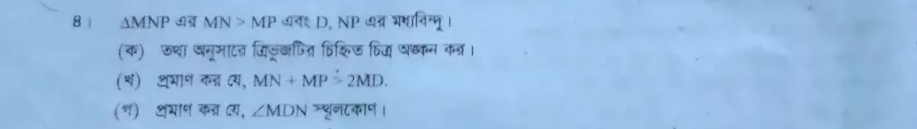 ৪। ΔMNP এর MN > MP এবং D, NP এর মধ্যবিন্দু।
(ক) তথ্য অনুসারে ত্রিভুজটির চিহ্নিত চিত্র অঙ্কন কর।
(খ) প্রমাণ কর যে, MN + MP > 2MD.
(গ) প্রমাণ কর যে, ∠MDN স্থূলকোণ।